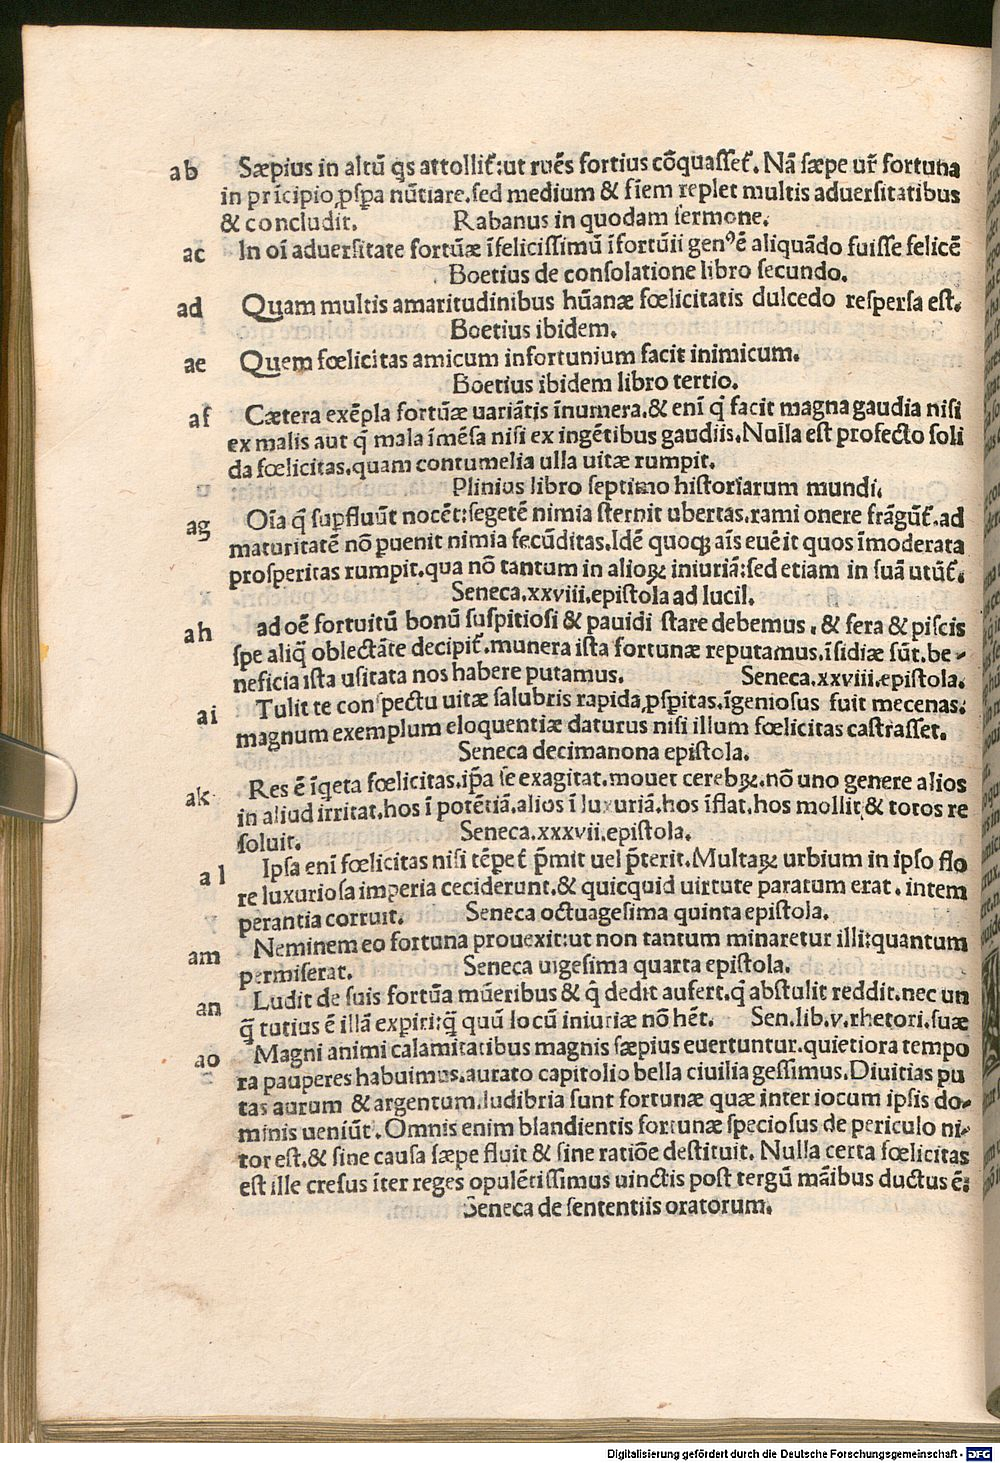 ab Sæpius in altū q̄s attollit᷑:ut ruēs fortius cōquasset᷑. Nā sæpe ur̄ fortuna
in prīcipio ꝓspa nūtiare.sed medium & finem replet multis aduersitatibus
& concludit. Rabanus in quodam sermone.
ac In oī aduersitate fortūæ īfelicissimū īfortūii genꝰē aliquādo fuisse felicē
Boetius de consolatione libro secundo.
ad Quam multis amaritudinibus hūanæ fœlicitatis dulcedo respersa est.
Boetius ibidem.
ae Quem fœlicitas amicum infortunium facit inimicum.
Boetius ibidem libro tertio.
af Cætera exēpla fortūæ uariātis īnumera.& enī q̄ facit magna gaudia nisi
ex malis aut q̄ mala īmēsa nisi ex ingētibus gaudiis.Nulla est profecto soli
da fœlicitas.quam contumelia ulla uitæ rumpit.
Plinius libro septimo historiarum mundi.
ag Oīa q̄ suꝑfluūt nocēt:segetē nimia sternit ubertas.rami onere frāgūt᷑.ad
maturitatē nō ꝑuenit nimia fecūditas.Idē quoqꝫ aīs euēit quos īmoderata
prosperitas rumpit.qua nō tantum in alioꝝ iniuriā:sed etiam in suā utūt᷑.
Seneca.xxviii.epistola ad lucil.
ah ad oē fortuitū bonū suspitiosi & pauidi stare debemus.& fera & piscis
spe aliq̄ oblectāte decipit᷑.munera ista fortunæ reputamus.īsidiæ sūt.be-
neficia ista usitata nos habere putamus. Seneca.xxviii.epistola.
ai Tulit te conspectu uitæ salubris rapida ꝓspitas.īgeniosus fuit mecenas:
magnum exemplum eloquentiæ daturus nisi illum fœlicitas castrasset.
Seneca decimanona epistola.
ak Res ē īqeta fœlicitas.ip̄a se exagitat.mouet cerebꝝ.nō uno genere alios
in aliud irritat.hos ī potētiā.alios ī luxuriā.hos īflat.hos mollit & totos re
soluit. Seneca.xxxvii.epistola.
al Ipsa enī fœlicitas nisi tēpet᷑ p̄mit uel p̄terit.Multaꝝ urbium in ipso flo
re luxuriosa imperia ceciderunt.& quicquid uirtute paratum erat. intem
perantia corruit. Seneca octuagesima quinta epistola.
am Neminem eo fortuna prouexit:ut non tantum minaretur illi:quantum
permiserat. Seneca uigesima quarta epistola.
an Ludit de suis fortūa mūeribus & q̄ dedit aufert.q̄ abstulit reddit.nec un
q̄ tutius ē illā expiri:q̄ quū locū iniuriæ nō hēt. Sen.lib.v.rhetori.suæ
ao Magni animi calamitatibus magnis sæpius euertuntur.quietiora tempo
ra pauperes habuimus.aurato capitolio bella ciuilia gessimus.Diuitias pu
tas aurum & argentum.ludibria sunt fortunæ quæ inter iocum ipsis do-
minis ueniūt.Omnis enim blandientis fortunæ speciosus de periculo ni-
tor est.& sine causa sæpe fluit & sine ratiōe destituit. Nulla certa fœlicitas
est ille cresus īter reges opulētissimus uinctis post tergū māibus ductus ē:
Seneca de sententiis oratorum.
Digitalisierung gefördert durch die Deutsche Forschungsgemeinschaft - DFG